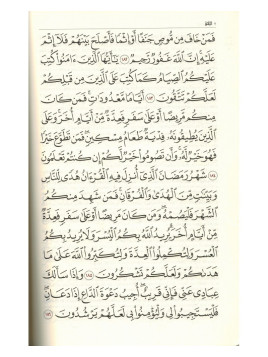 فَمَنْ خَافَ مِن مُّوصٍ جَنَفًا أَوْ إِثْمًا فَأَصْلَحَ بَيْنَهُمْ فَلَآ إِثْمَ
عَلَيْهِ إِنَّ ٱللَّهَ غَفُورٌ رَّحِيمٌ ١٨٢ يَٰٓأَيُّهَا ٱلَّذِينَ ءَامَنُوا۟ كُتِبَ
عَلَيْكُمُ ٱلصِّيَامُ كَمَا كُتِبَ عَلَى ٱلَّذِينَ مِن قَبْلِكُمْ
لَعَلَّكُمْ تَتَّقُونَ ١٨٣ أَيَّامًا مَّعْدُودَٰتٍ فَمَن كَانَ
مِنكُم مَّرِيضًا أَوْ عَلَىٰ سَفَرٍ فَعِدَّةٌ مِّنْ أَيَّامٍ أُخَرَ وَعَلَى
ٱلَّذِينَ يُطِيقُونَهُۥ فِدْيَةٌ طَعَامُ مِسْكِينٍ فَمَن تَطَوَّعَ خَيْرًا
فَهُوَ خَيْرٌ لَّهُۥ وَأَن تَصُومُوا۟ خَيْرٌ لَّكُمْ إِن كُنتُمْ تَعْلَمُونَ
١٨٤ شَهْرُ رَمَضَانَ ٱلَّذِىٓ أُنزِلَ فِيهِ ٱلْقُرْءَانُ هُدًى لِّلنَّاسِ
وَبَيِّنَٰتٍ مِّنَ ٱلْهُدَىٰ وَٱلْفُرْقَانِ فَمَن شَهِدَ مِنكُمُ
ٱلشَّهْرَ فَلْيَصُمْهُ وَمَن كَانَ مَرِيضًا أَوْ عَلَىٰ سَفَرٍ فَعِدَّةٌ
مِّنْ أَيَّامٍ أُخَرَ يُرِيدُ ٱللَّهُ بِكُمُ ٱلْيُسْرَ وَلَا يُرِيدُ بِكُمُ
ٱلْعُسْرَ وَلِتُكْمِلُوا۟ ٱلْعِدَّةَ وَلِتُكَبِّرُوا۟ ٱللَّهَ عَلَىٰ مَا
هَدَىٰكُمْ وَلَعَلَّكُمْ تَشْكُرُونَ ١٨٥ وَإِذَا سَأَلَكَ
عِبَادِى عَنِّى فَإِنِّى قَرِيبٌ أُجِيبُ دَعْوَةَ ٱلدَّاعِ إِذَا دَعَانِ
فَلْيَسْتَجِيبُوا۟ لِى وَلْيُؤْمِنُوا۟ بِى لَعَلَّهُمْ يَرْشُدُونَ ١٨٦